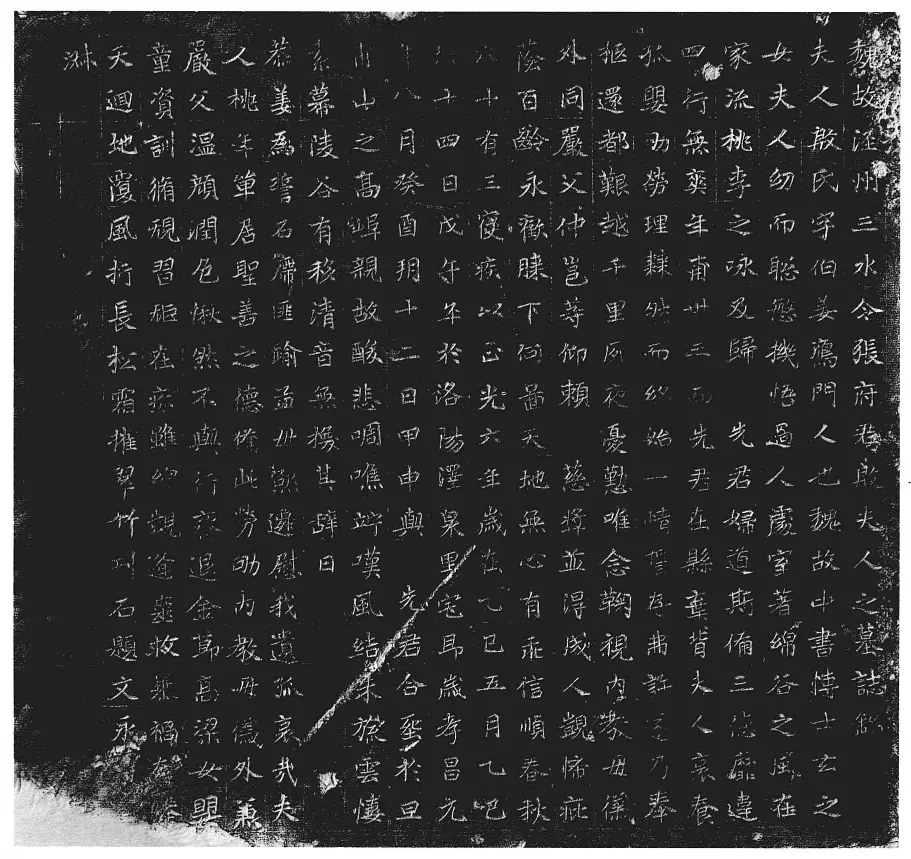 魏故涇州三水令張府君故殷夫人之墓誌銘
夫人殷氏字伯姜鴈門人也魏故中書博士玄之
女夫人幼而聡慜機悟過人處室著綿谷之風在
家流桃李之咏及歸先君婦道斯俻三從靡違
四行無爽年甫卅五而先君在縣棄背夫人哀養
孤嬰劬勞理棘然而終始一情誓存弗許乃奉
柩還都艱越千里夙夜憂懃唯念鞠視內教母儀
外同嚴父仲豈等仰賴慈將並得成人觀帝庇
蔭百齡永歡膝下何啚天地無心有乖信順春秋
六十有三寑疾以正光六年歲在乙巳五月乙巳
朔十四日戊午卒於洛陽澤泉里宅即歲孝昌元
年八月癸酉朔十二日甲申與先君合塟於旦
甫山之髙崿親故酸悲啁噍嘆風結未旅雲慎
素幕陵谷有移清音無揜其辝曰
恭姜為誓石席匪踰孟母斯遷慰我遺孤哀哉夫
人桃年單居聖善之德俻此劳劬內教母儀外兼
嚴父温顏潤色愀然不與行諒退金節髙梁女嬰
童資訓脩規習矩在疚雖幼覯逢奄救無禍
天迴地覆風折長松霜摧翠竹刊石題文永
淋